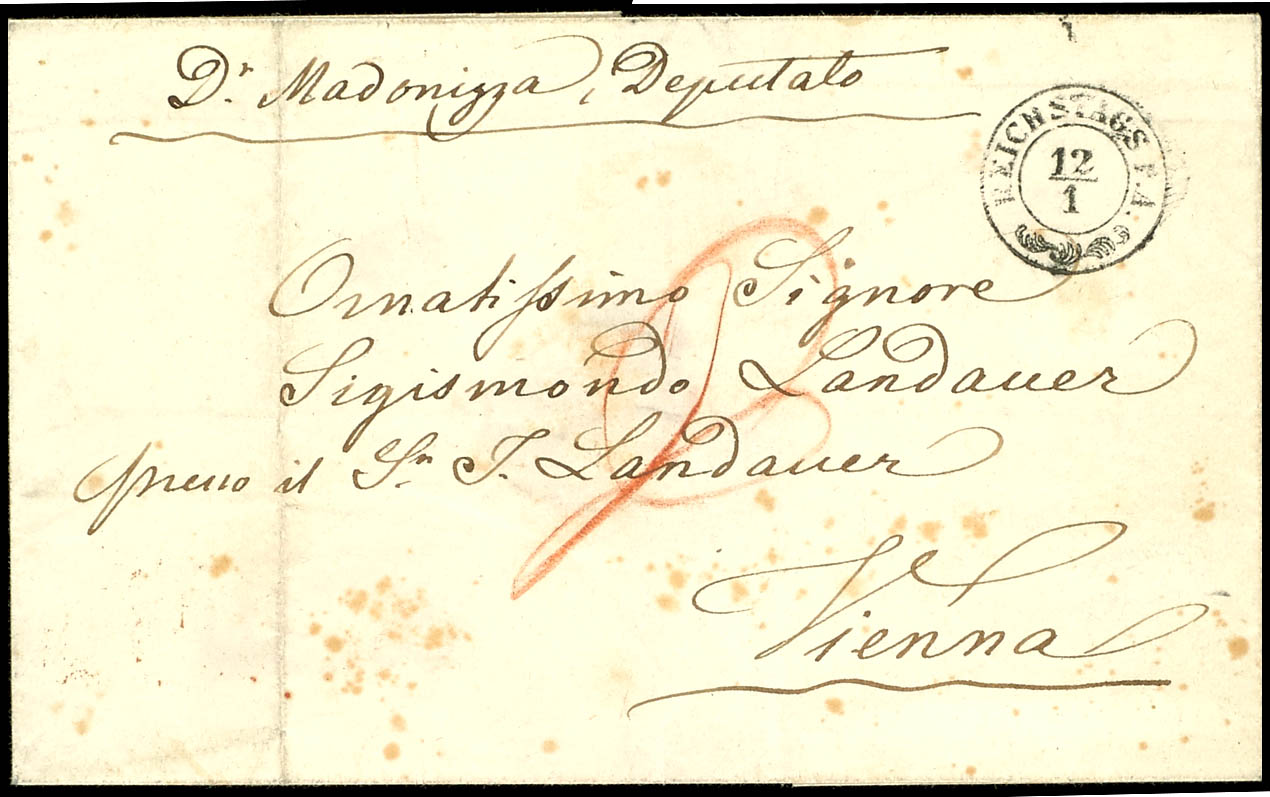 Dr. Madonizza, Deputato
REICHSTAGS F.A.
12
1
Ornatissimo Signore
Sigismondo Landauer
presso il Sr. J. Landauer
Vienna